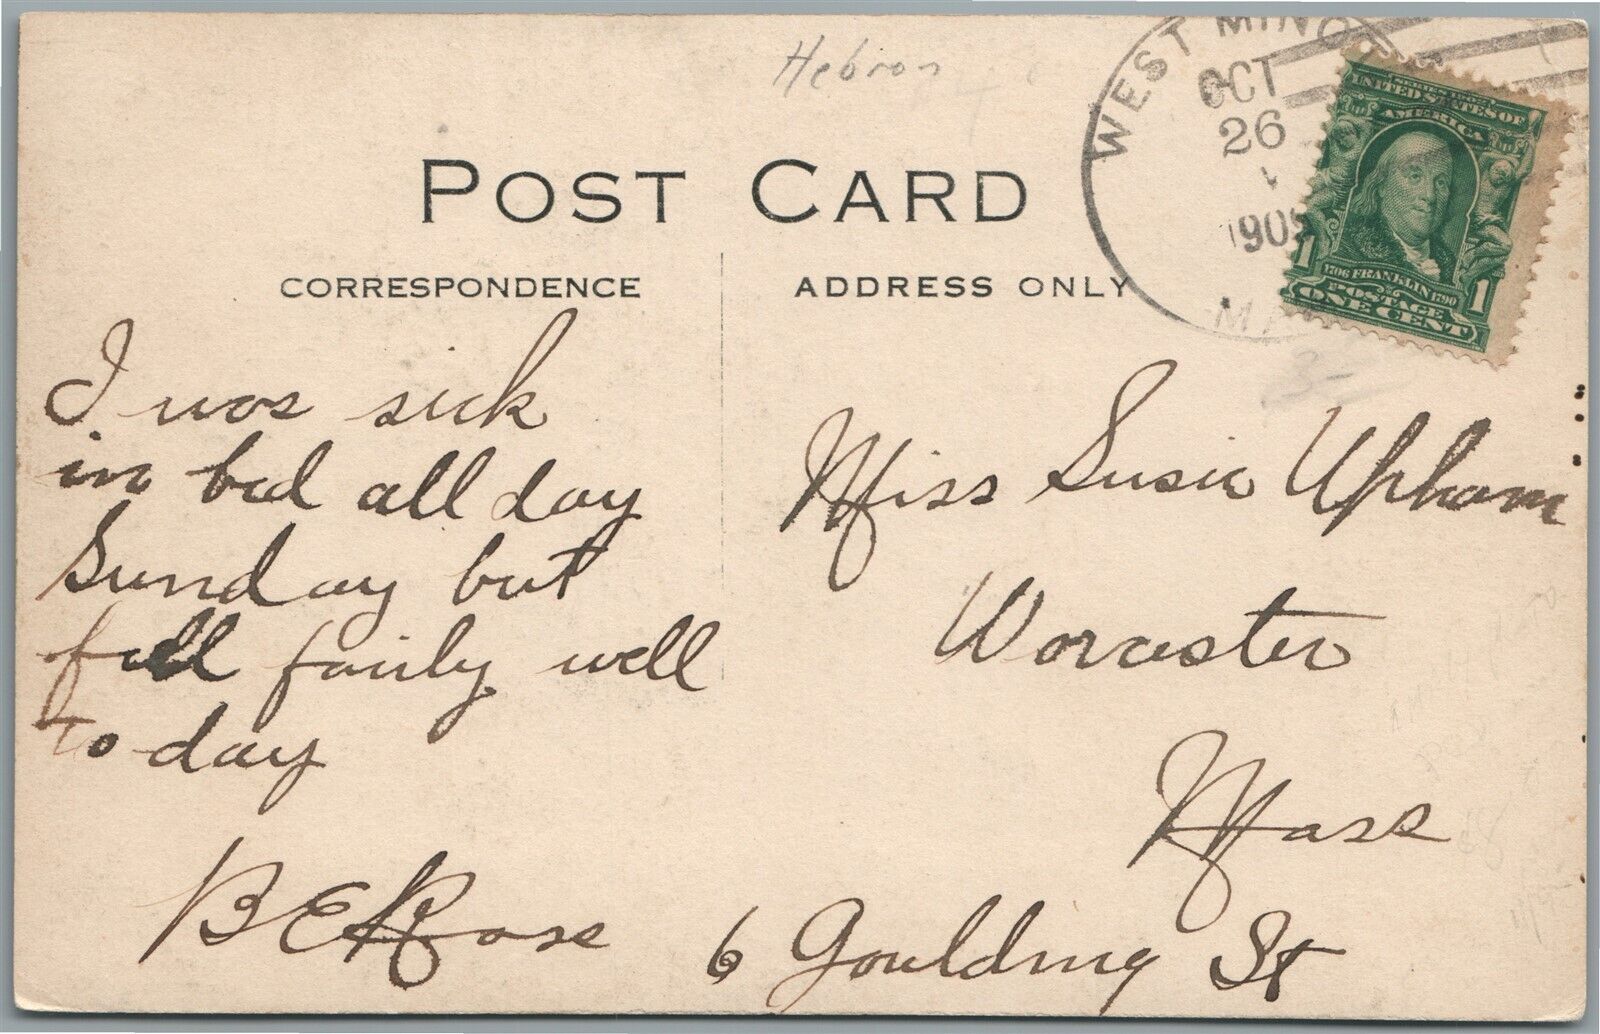 Hebron
WEST MINOT
OCT
26
190
SERIES 1902
UNITED STATES OF
AMERICA
1706 FRANKLIN 1790
1 1
POSTAGE
ONE CENT
POST CARD
CORRESPONDENCE
ADDRESS ONLY
I was sick
in bed all day
Sunday but
fell fairly well
to day
B E Rose
Miss Susie Upham
Worcester
Mass
6 Goulding St